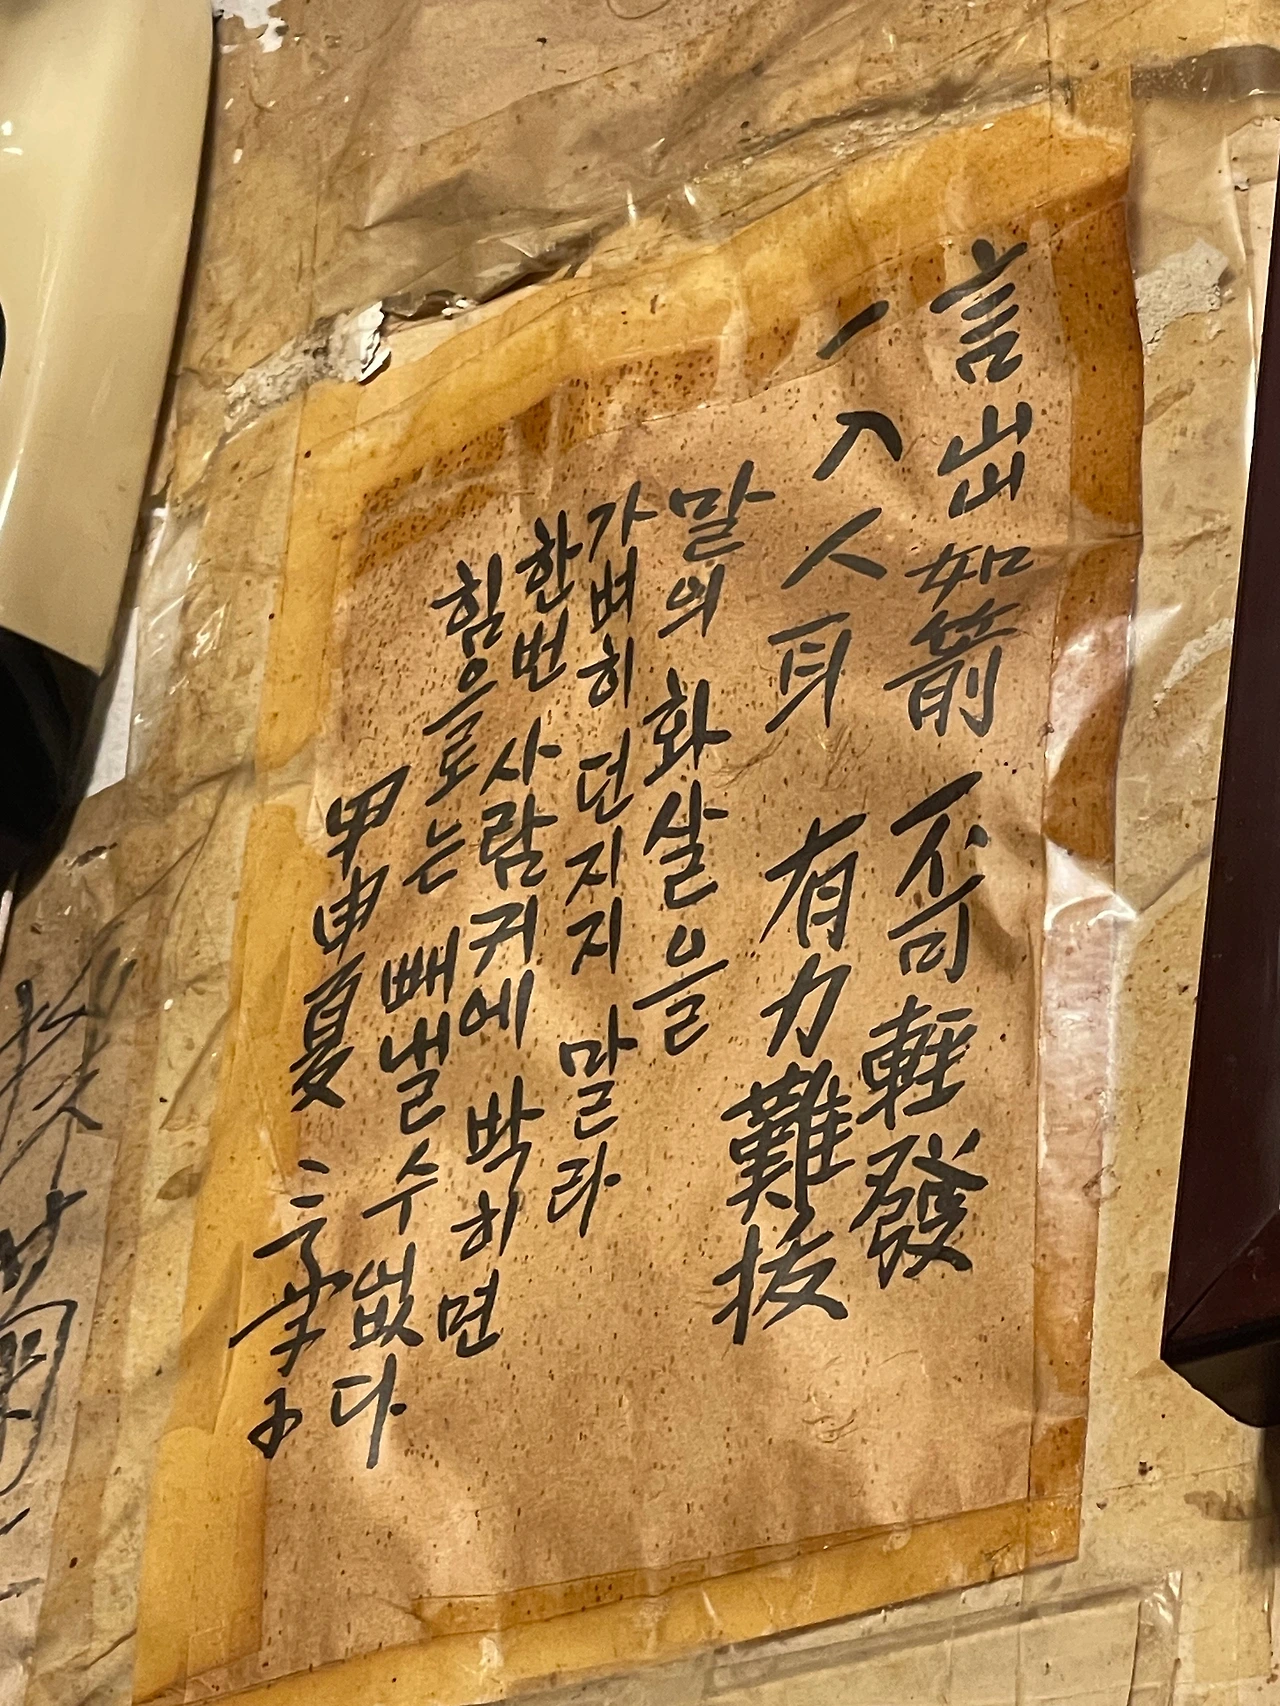 言出如箭 不可輕發
一入人耳 有力難拔
말의 화살을
가벼히 던지지 말라
한번 사람귀에 박히면
힘으로는 빼낼수없다
甲申夏